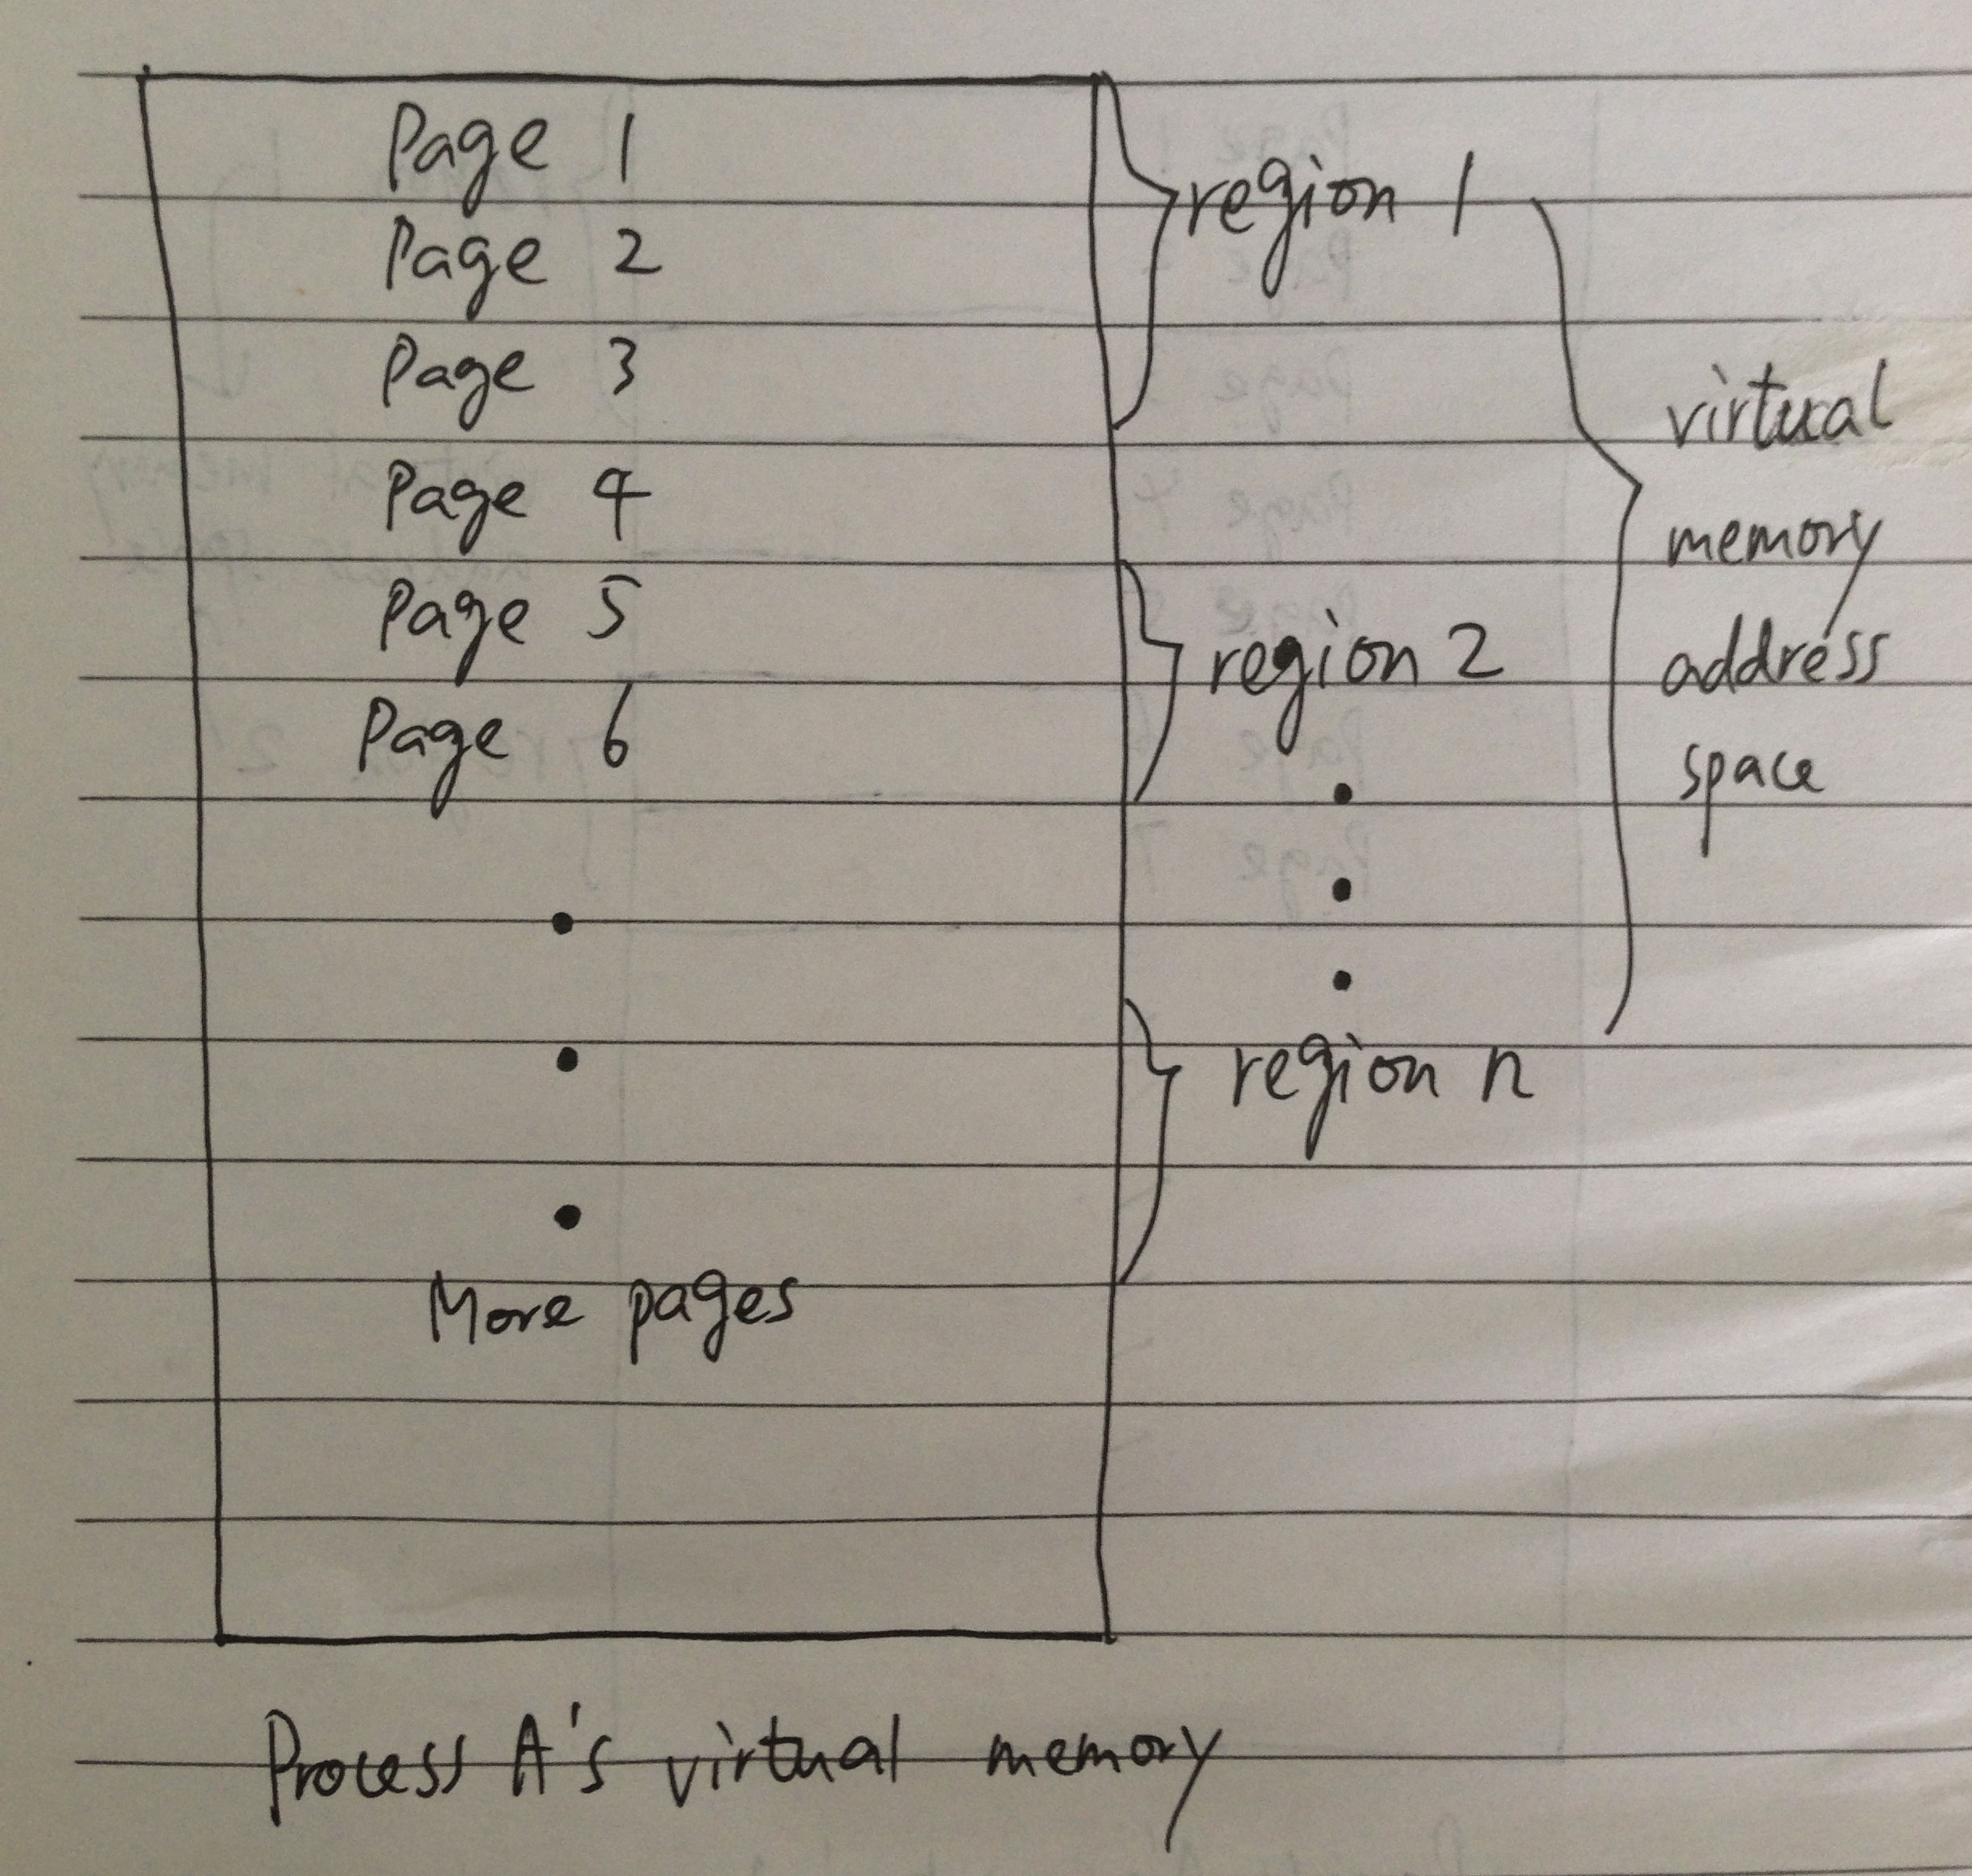 Page 1
Page 2
Page 3
Page 4
Page 5
Page 6
More pages
region 1
region 2
region n
virtual
memory
address
space
Process A's virtual memory